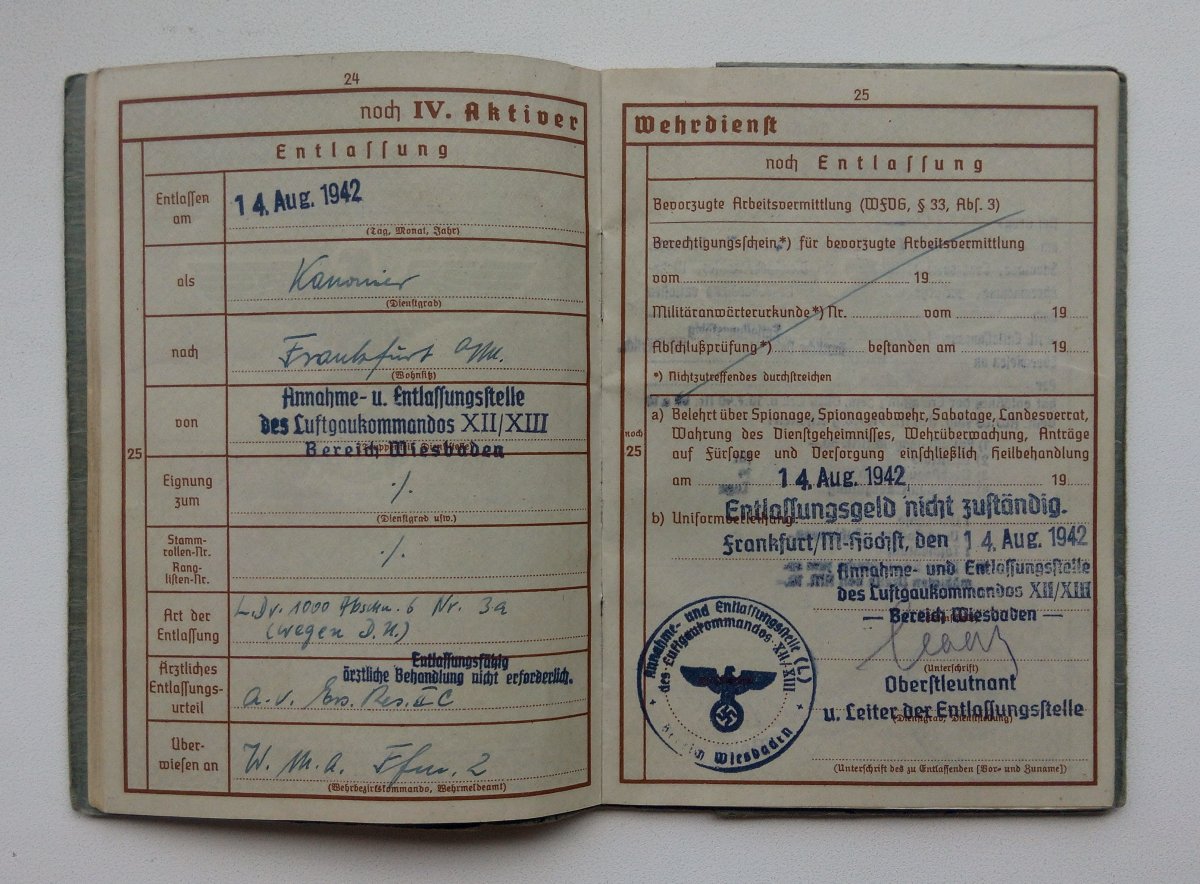 24
noch IV. Aktiver
Entlassung
Entlassen am
14. Aug. 1942
(Tag, Monat, Jahr)
als
Kanonier
(Dienstgrad)
nach
Frankfurt a/M.
(Wohnsitz)
von
Annahme- u. Entlassungsstelle
des Luftgaukommandos XII/XIII
Bereich Wiesbaden
25
Eignung zum
./.
(Dienstgrad usw.)
Stamm-
rollen-Nr.
Rang-
listen-Nr.
./.
Art der
Entlassung
L.Dv. 1000 Abschn. 6 Nr. 3a
(wegen D.U.)
Ärztliches
Entlassungs-
urteil
Entlassungsfähig
ärztliche Behandlung nicht erforderlich.
a.v. Ers. Res. II C
Über-
wiesen an
W. M. A. Ffm. 2
(Wehrbezirkskommando, Wehrmeldeamt)
25
Wehrdienst
noch Entlassung
Bevorzugte Arbeitsvermittlung (WFVG, § 33, Abs. 3)
Berechtigungsschein*) für bevorzugte Arbeitsvermittlung
vom 19
Militäranwärterurkunde*) Nr. vom 19
Abschlußprüfung*) bestanden am 19
*) Nichtzutreffendes durchstreichen
noch
25
a) Belehrt über Spionage, Spionageabwehr, Sabotage, Landesverrat,
Wahrung des Dienstgeheimnisses, Wehrüberwachung, Anträge
auf Fürsorge und Versorgung einschließlich Heilbehandlung
am 14. Aug. 1942 19
Entlassungsgeld nicht zuständig.
b) Uniformverleihung:
Frankfurt/M-Höchst, den 14. Aug. 1942
Annahme- und Entlassungsstelle
des Luftgaukommandos XII/XIII
— Bereich Wiesbaden —
(Unterschrift)
Oberstleutnant
u. Leiter der Entlassungsstelle
(Dienstgrad, Dienststellung)
(Unterschrift des zu Entlassenden [Vor- und Zuname])
Annahme- und Entlassungsstelle (L)
des Luftgaukommandos XII/XIII
Bereich Wiesbaden